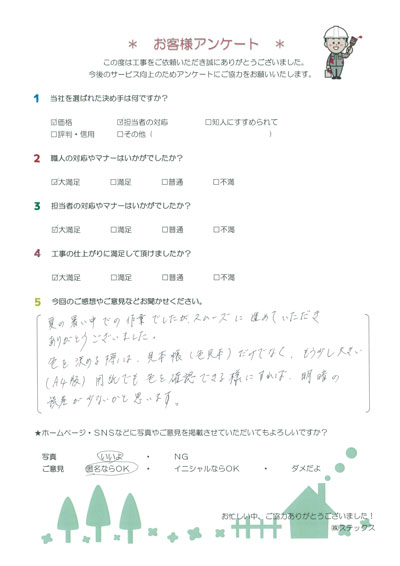 ＊ お客様アンケート ＊
この度は工事をご依頼いただき誠にありがとうございました。
今後のサービス向上のためアンケートにご協力をお願いいたします。
1 当社を選ばれた決め手は何ですか?
☑価格 ☑担当者の対応 □知人にすすめられて
□評判・信用 □その他（ ）
2 職人の対応やマナーはいかがでしたか?
☑大満足 □満足 □普通 □不満
3 担当者の対応やマナーはいかがでしたか?
☑大満足 □満足 □普通 □不満
4 工事の仕上がりに満足して頂けましたか?
☑大満足 □満足 □普通 □不満
5 今回のご感想やご意見などお聞かせください。
夏の暑い中での作業でしたが、スムーズに進めていただき
ありがとうございました。
色を決める様には、見本帳（色見本）だけでなく、もう少し大きい
（A4版）用紙でも色を確認できる様にすれば、明暗の
誤差が少ないかと思います。
★ホームページ・SNSなどに写真やご意見を掲載させていただいてもよろしいですか?
写真 いいよ ・ NG
ご意見 匿名ならOK ・ イニシャルならOK ・ ダメだよ
お忙しい中、ご協力ありがとうございました！
㈱ステックス